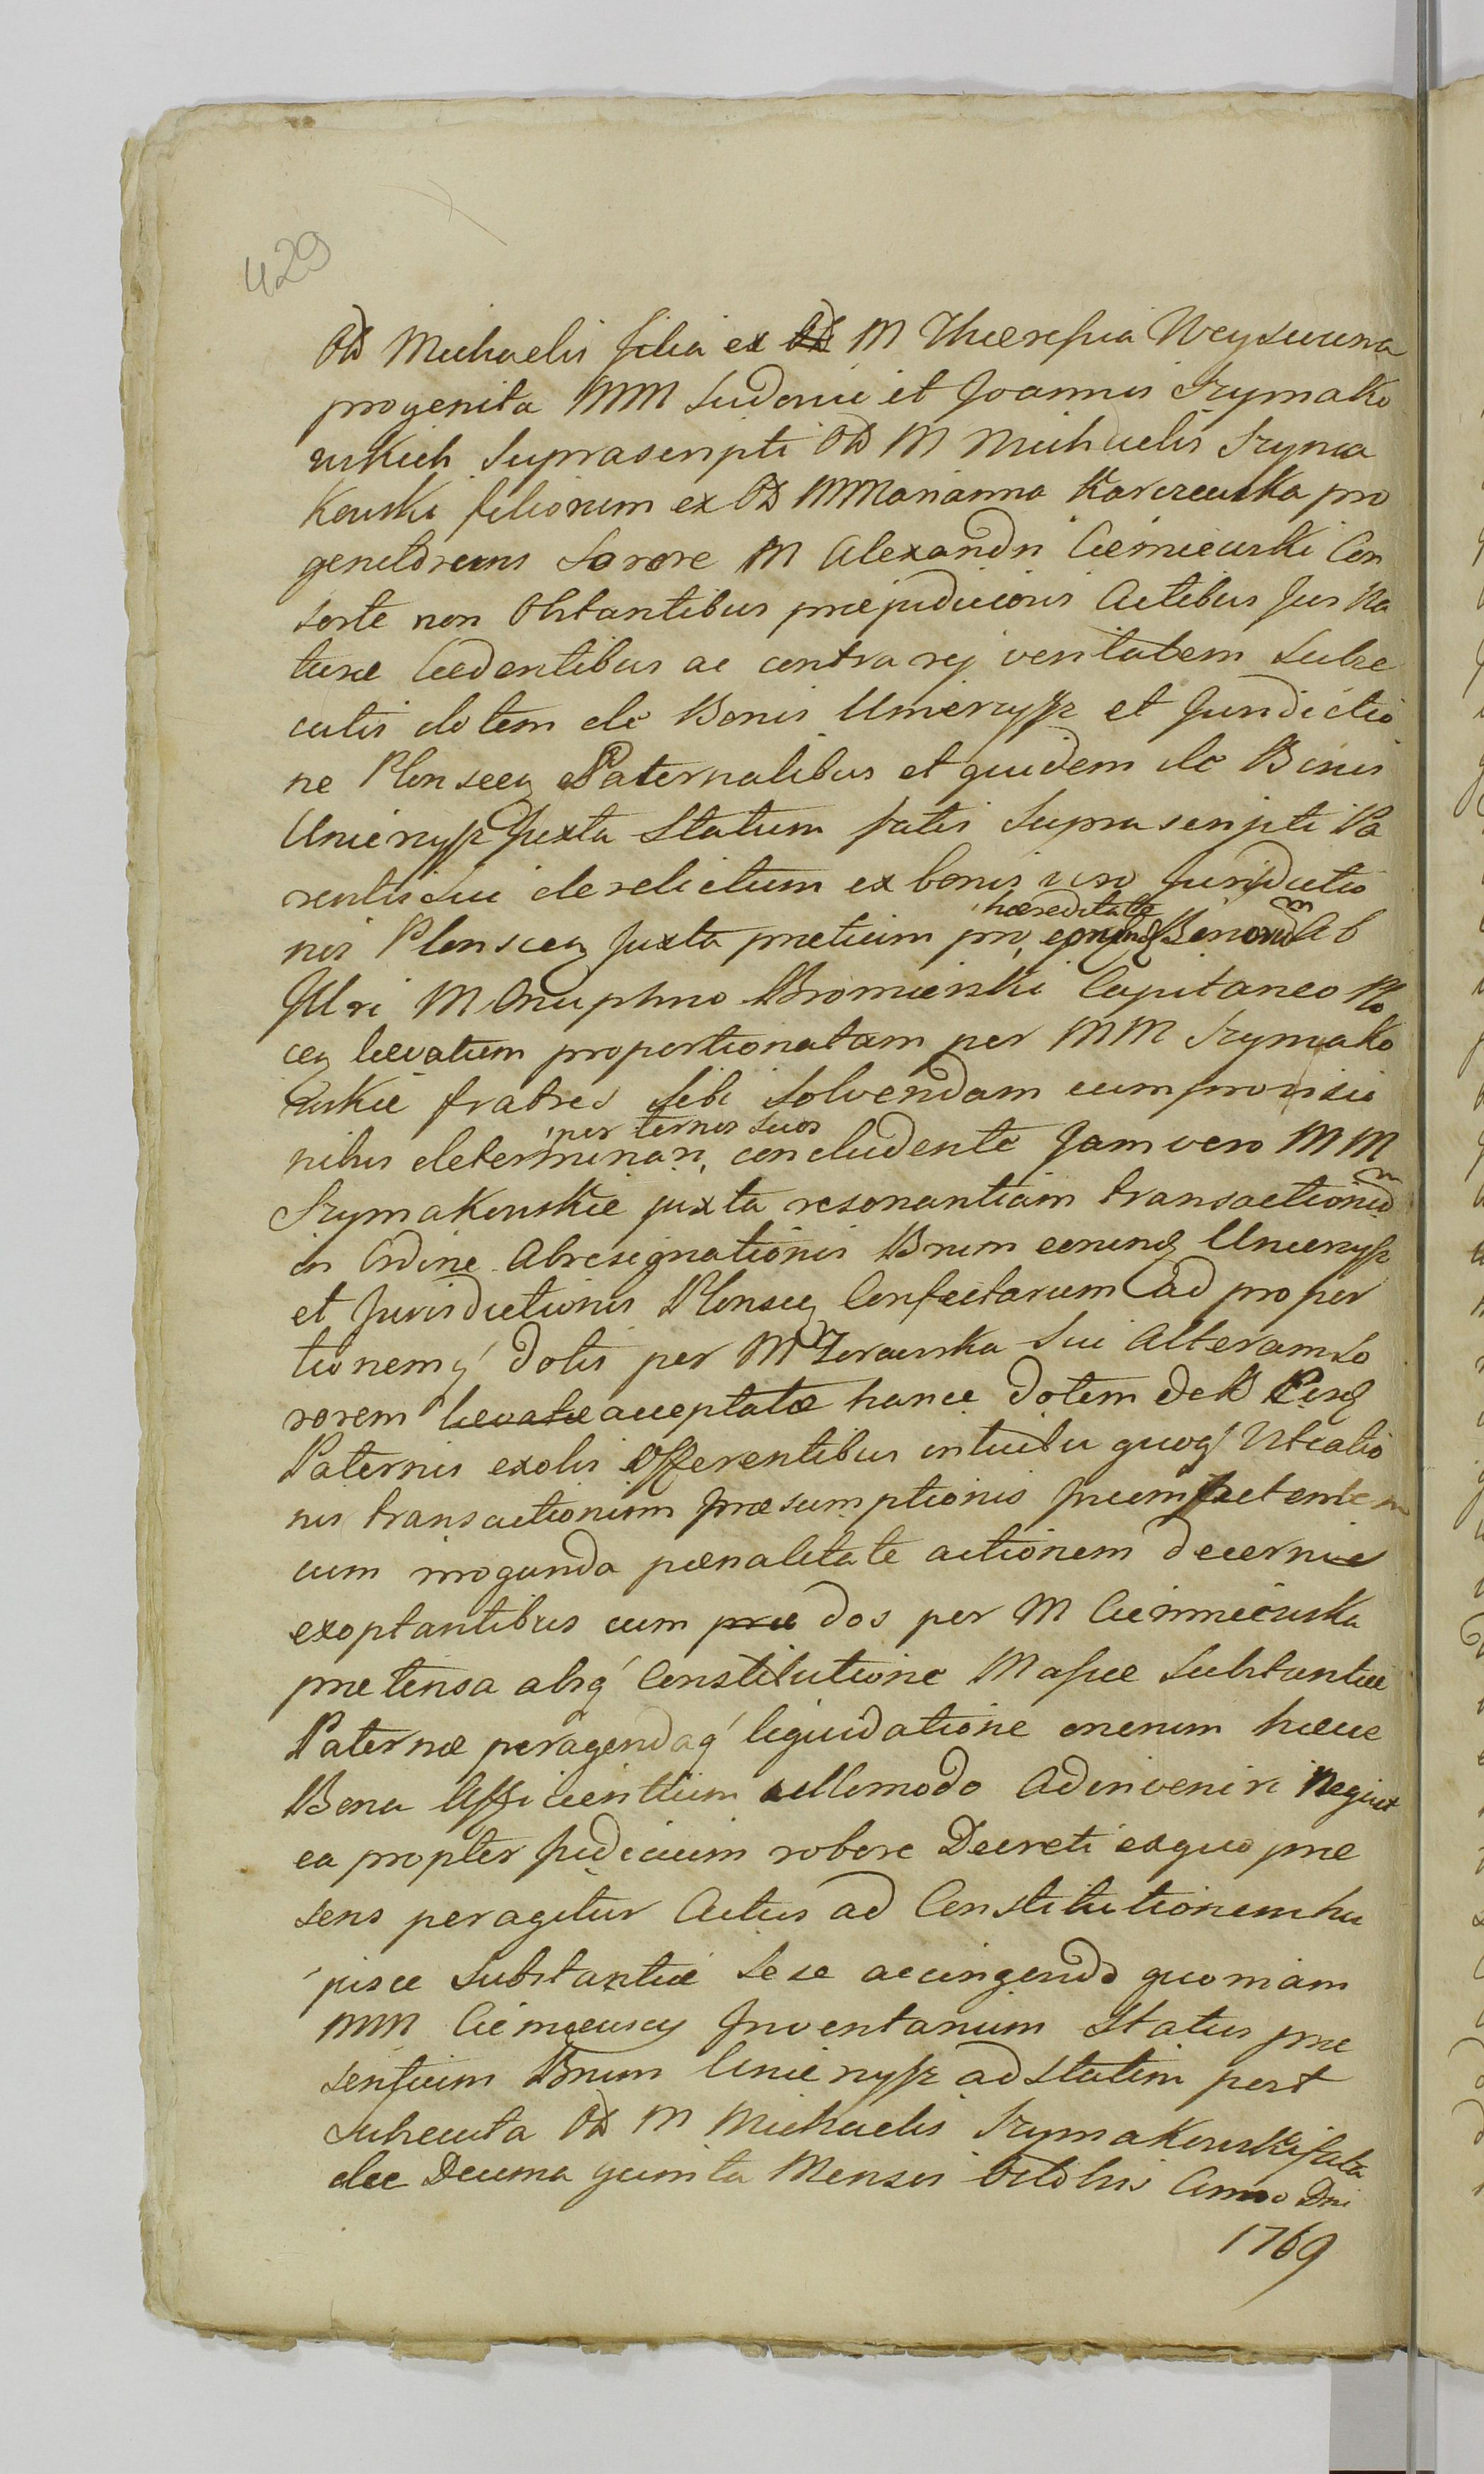 429
Od Michaelis filia ex M Theresia Weysuwna
progenita MM Ludovici et Joannis Szymako
wskich Suprascripti Od M Michaelis Szyma
kowski filiorum ex Od M Marianna Karczewska pro
genitorum Sorore M Alexandri Ciemiewski Con
sorte non Obstantibus præjudiciosis Actibus Jus Na
turæ Cædentibus ac contra rej veritatem Subse
cutis dotem de Bonis Unierzysz et Jurisdictio
ne Plonscen Paternalibus et quidem de Bonis
Unierzysz Juxta Statum fatis Suprascripti Pa
rentis Sui derelictum ex bonis vero Jurisdictio
nis Plonscen Juxta prætium pro hæreditate eorundem Bonorum Ab
Illri M Onuphrio Bromierski Capitaneo Plo
cen lævatum proportionatam per MM Szymako
wskie fratres Sibi Solvendam cum provisio
nibus determinari per ternos suos concludente Jam vero MM
Szymakowskie juxta resonantiam transactionum
in Ordine Abresignationis Bnrum eorund Unierzysz
et Jurisdictionis Plonscen Confectarum ad propor
tionemq dotis per M Zorawska Sui Alteram So
rorem levatæ acceptatæ hance dotem de B
Paternis exolis Offerentibus intuitu quoq
nis transactionum præsumptionis
cum irroganda pœnalitate actionem decerni
exoptantibus cum præ dos per M Ciemniewska
prætensa absq Constitutione Massæ Substantiæ
Paternæ peragendaq liquidatione onerum hæce
Bona Afficientium ullomodo Adinveniri Nequit
ea propter Judicium robore Decreti exquo præ
sens peragitur Actus ad Constitutionem hu
jusce Substantiæ Sese accingendo quoniam
MM Ciemiewscy Inventarium Status præ
sentium Bnrum Unierzysz ad Statim post
Subsecuta Od M Michaelis Szymakowski fata
die Decima quinta Mensis Octobris Anno Dni
1769